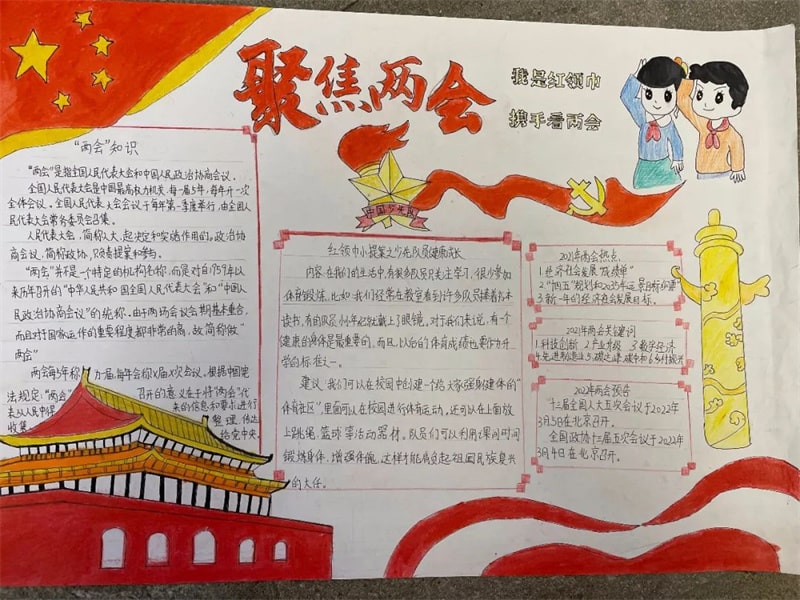 聚焦两会
我是红领巾
携手看两会
"两会"知识
"两会"是指全国人民代表大会和中国人民政治协商会议。
全国人民代表大会是中国最高权力机关，每一届5年，每年开一次
全体会议。全国人民代表大会会议于每年第一季度举行，由全国人
民代表大会常务委员会召集。
人民代表大会，简称人大，起决定和实施作用的。政治协
商会议，简称政协，只有提案和参与。
"两会"并不是一个特定的机构名称，而是对自1959年以
来历年召开的"中华人民共和国全国人民代表大会"和"中国人
民政治协商会议"的统称。由于两场会议会期基本重合，
而且对于国家运作的重要程度都非常的高，故简称做"
两会"
两会每5年称为一届，每年会称X届X次会议。根据中国宪
法规定："两会"召开的意义在于将"两会"代
表从人民中得来的信息和要求进行
收集整理，传达
给党中央。
中国少先队
红领巾小提案之少先队员健康成长
内容：在我们的生活中，有很多队员只关注学习，很少参加
体育锻炼。比如：我们经常在教室看到许多队员捧着书本
读书，有的队员小小年纪就戴上了眼镜。对于我们来说，有一个
健康的身体是最重要的，而且，以后的体育成绩也要作为升
学的标准之一。
建议：我们可以在校园中创建一个给大家强身健体的"
体育社区"，里面可以在校园进行体育运动，还可以在上面放
上跳绳、篮球等活动器材。队员们可以利用课间时间
锻炼身体，增强体魄，这样才能肩负起祖国民族复兴
的大任。
2021年两会热点
1.经济社会发展"成绩单"
2."十四五"规划和2035年远景目标纲要
3.新一年的经济社会发展目标。
2021年两会关键词
1.科技创新 2.产业升级 3.数字经济
4.先进制造业 5.碳达峰碳中和 6.乡村振兴
2022年两会预告
十三届全国人大五次会议于2022年
3月5日在北京召开。
全国政协十三届五次会议于2022年
3月4日在北京召开。